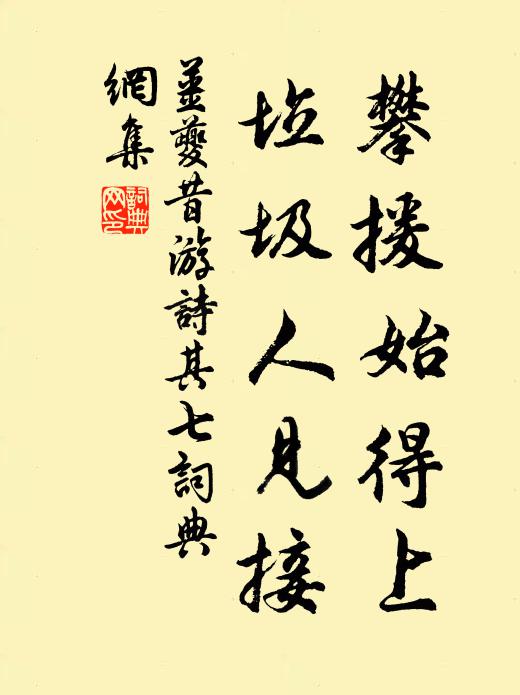 攀援始得上
垃圾人見接
薑夔昔游詩其七詞典
網集
詞典
网印